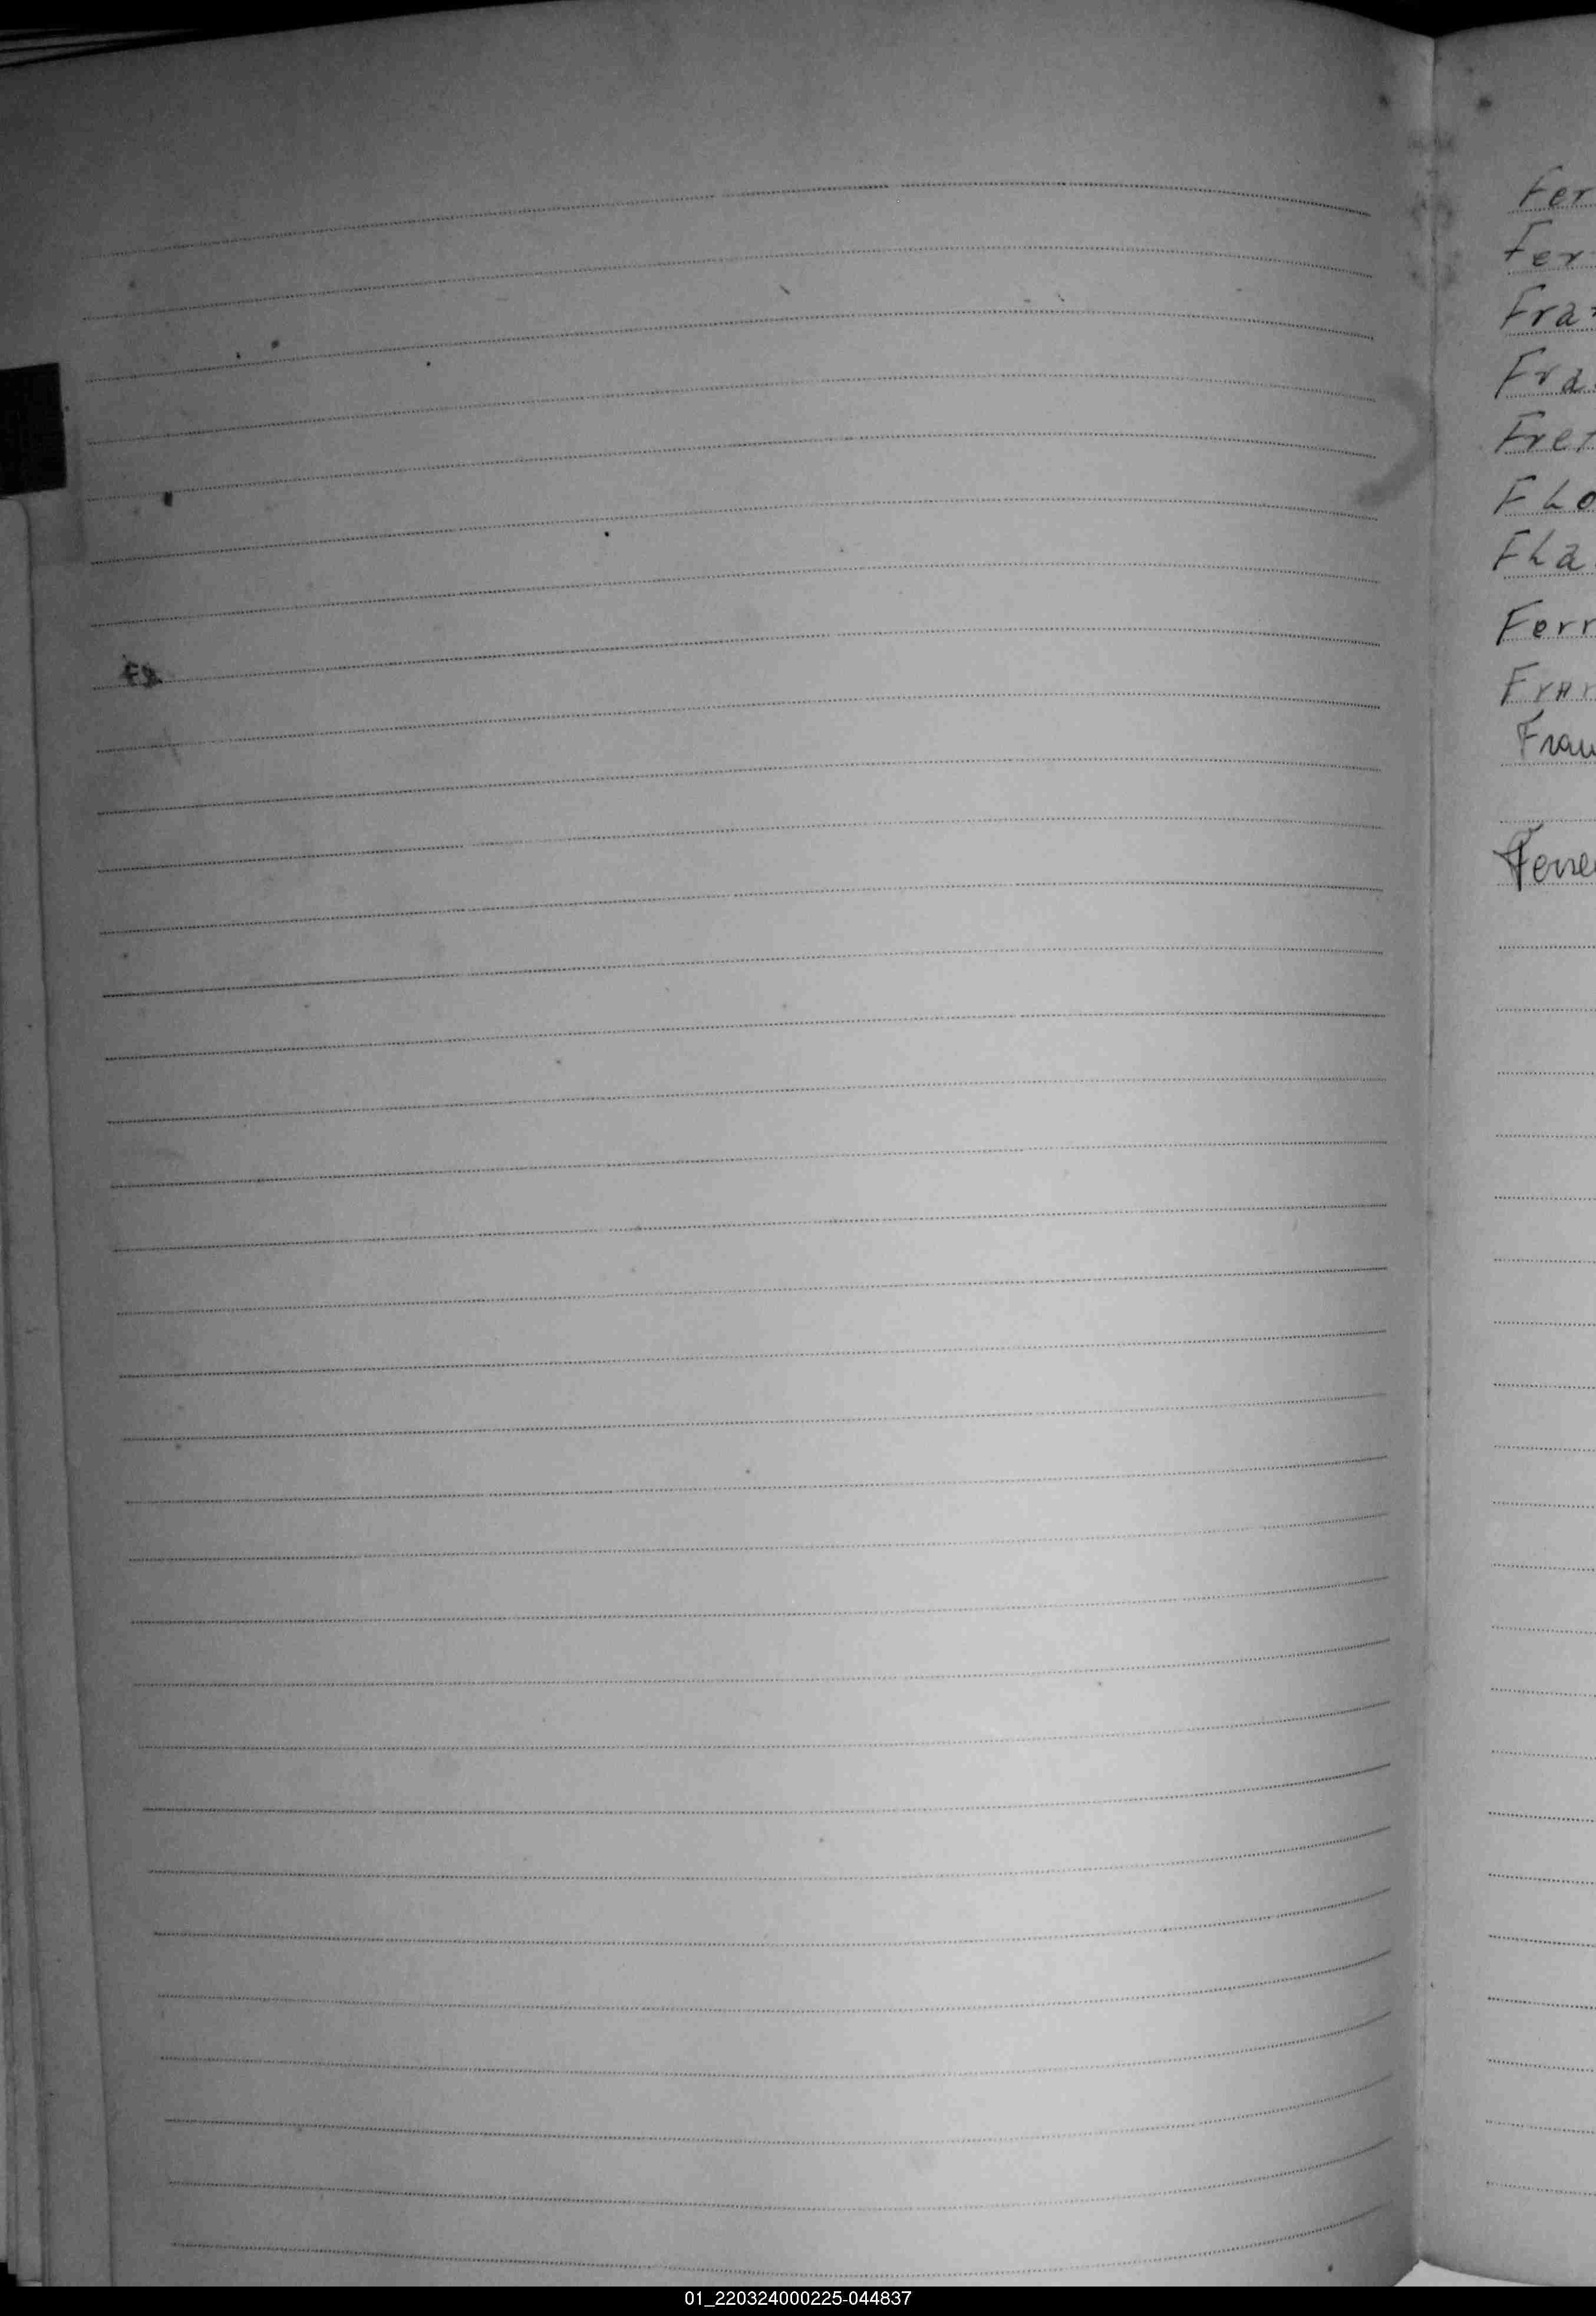 Fer
Fer
Fra
Fra
Fre
FLo
FLa
Ferr
Frar
Frau
01_220324000225-044837